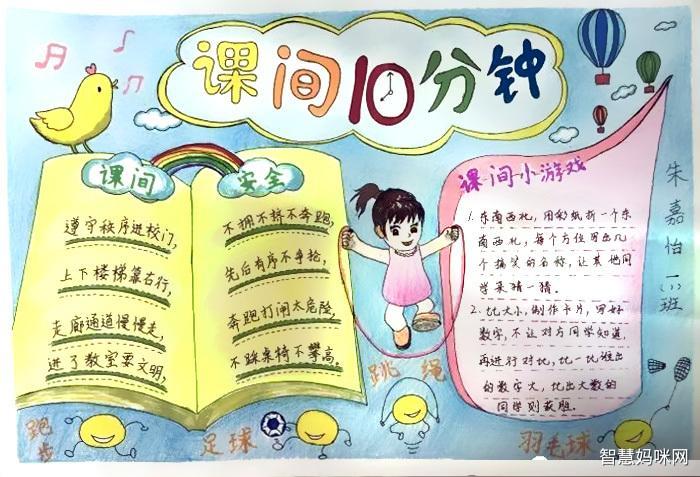 课间10分钟
课间
遵守秩序进校门,
上下楼梯靠右行,
走廊通道慢慢走,
进了教室要文明,
安全
不拥不挤不奔跑,
先后有序不争抢,
奔跑打闹太危险,
不踩桌椅不攀高。
课间小游戏
1. 东南西北, 用彩纸折一个东
南西北, 每个方位写出几
个搞笑的名称, 让其他同
学来猜一猜。
2. 比大小, 制作卡片, 写好
数字, 不让对方同学知道,
再进行对比, 比一比谁出
的数字大, 比出大数的
同学则获胜。
朱嘉怡一(1)班
跳绳
跑步
足球
羽毛球
智慧妈咪网